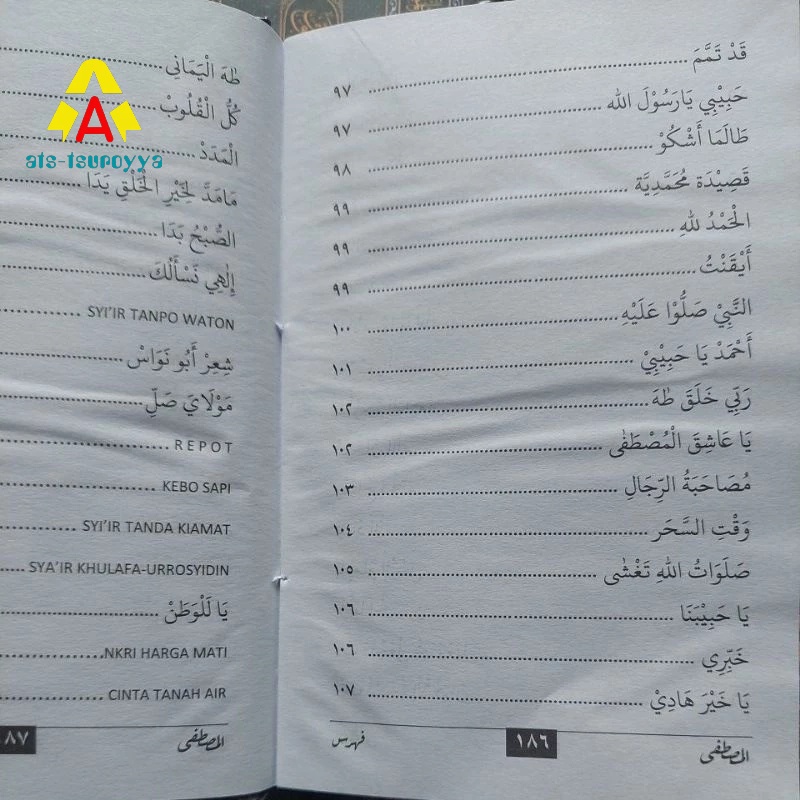 قَدْ تَمَّمَ ........ ٩٧
حَبِيْبِي يَارَسُوْلَ الله ........ ٩٧
طَالَمَا أَشْكُوْ ........ ٩٨
قَصِيْدَة مُحَمَّدِيَّة ........ ٩٩
الْحَمْدُ للهِ ........ ٩٩
أَيْقَنْتُ ........ ٩٩
النَّبِيْ صَلُّوْا عَلَيْهِ ........ ١٠٠
أَحْمَدْ يَا حَبِيْبِيْ ........ ١٠١
رَبِّي خَلَقَ طٰهَ ........ ١٠٢
يَا عَاشِقَ الْمُصْطَفٰى ........ ١٠٢
مُصَاحَبَةُ الرِّجَالِ ........ ١٠٣
وَقْتِ السَّحَر ........ ١٠٤
صَلَوَاتُ اللهِ تَغْشٰى ........ ١٠٥
يَا حَبِيْبَنَا ........ ١٠٦
خَبِّرِي ........ ١٠٦
يَا خَيْرَ هَادِيْ ........ ١٠٧
المصطفى ١٨٦ فهرس
طٰهَ الْيَمَانِي ........
كُلُّ الْقُلُوبْ ........
الْمَدَدْ ........
مَامَدَّ لِخَيْرِ الْخَلْقِ يَدَا ........
الصُّبْحُ بَدَا ........
إِلٰهِي نَسْأَلُكَ ........
SYI'IR TANPO WATON ........
شِعِرْ أَبُو نَوَاسْ ........
مَوْلَايَ صَلِّ ........
REPOT ........
KEBO SAPI ........
SYI'IR TANDA KIAMAT ........
SYA'IR KHULAFA-URROSYIDIN ........
يَا لَلْوَطَنْ ........
NKRI HARGA MATI ........
CINTA TANAH AIR ........
المصطفى ٨٧
A
ats-tsuroyya